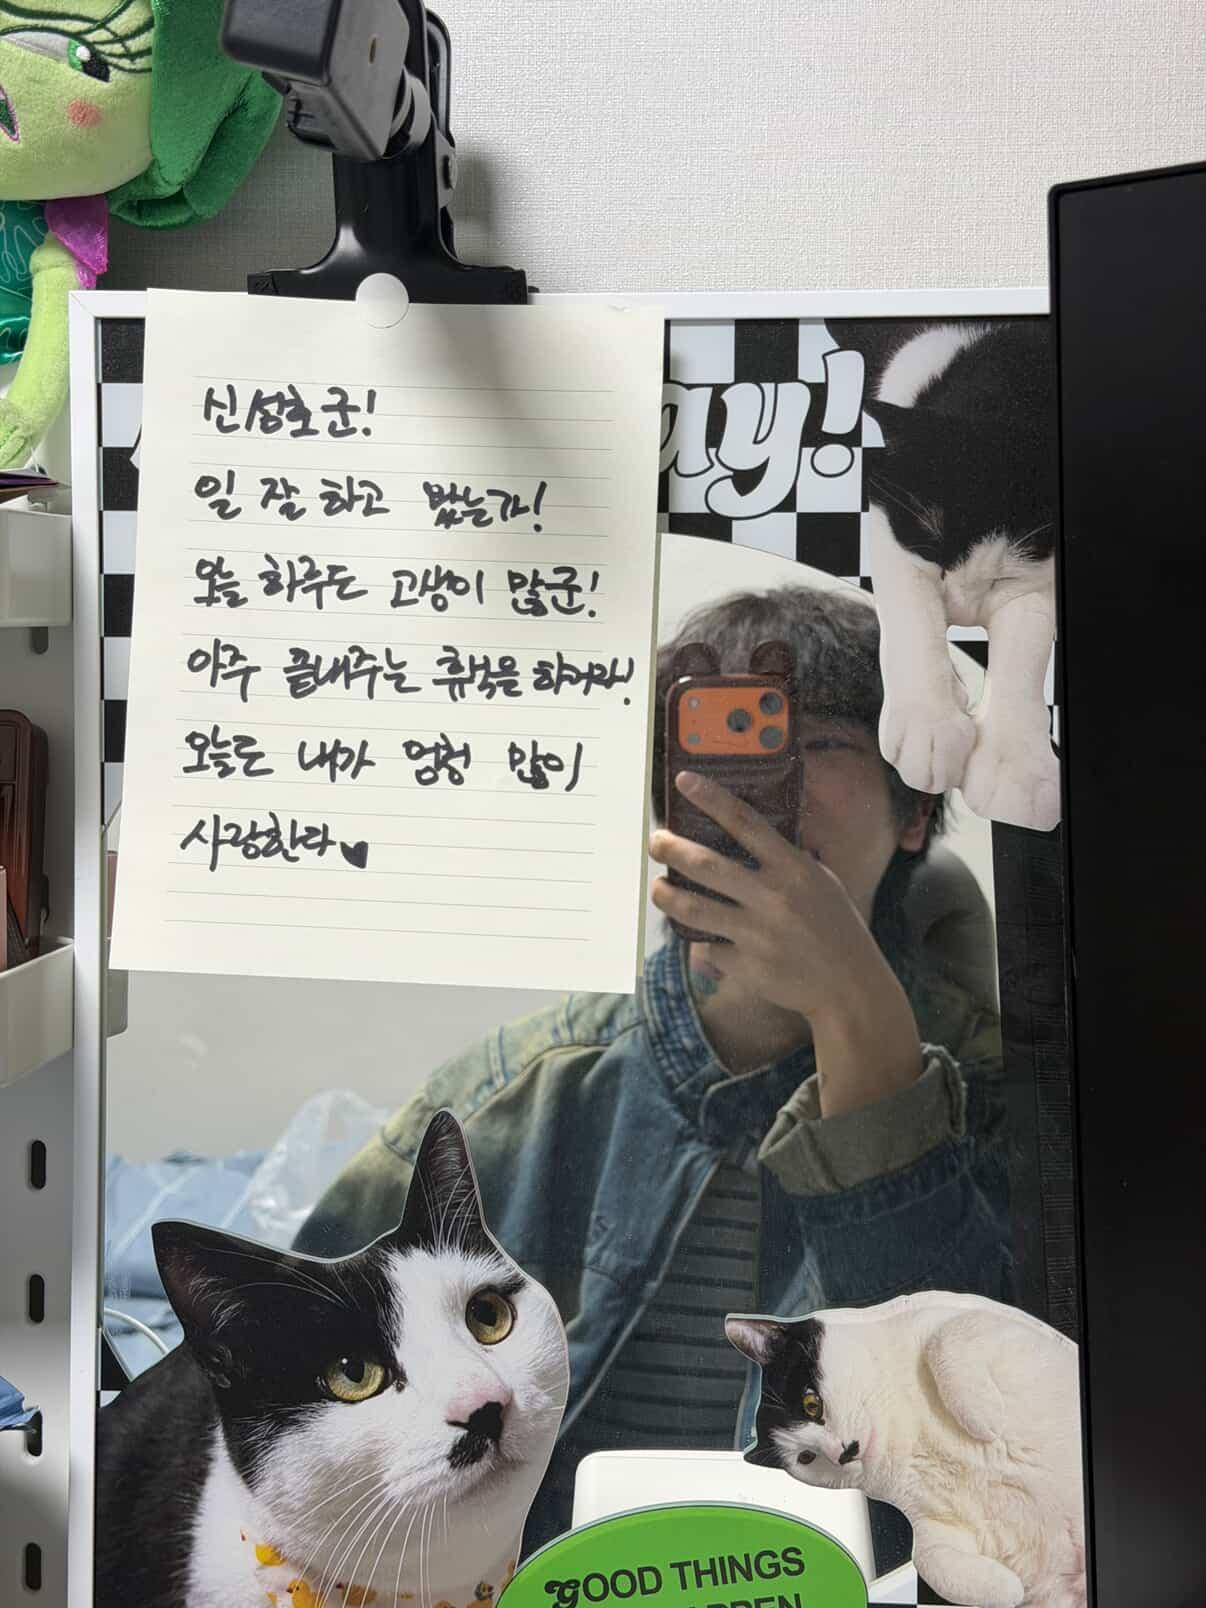 신성호군!
일 잘 하고 왔는가!
오늘 하루도 고생이 많군!
아주 끝내주는 휴식을 하거라!
오늘도 내가 엄청 많이
사랑한다♥
ay!
GOOD THINGS